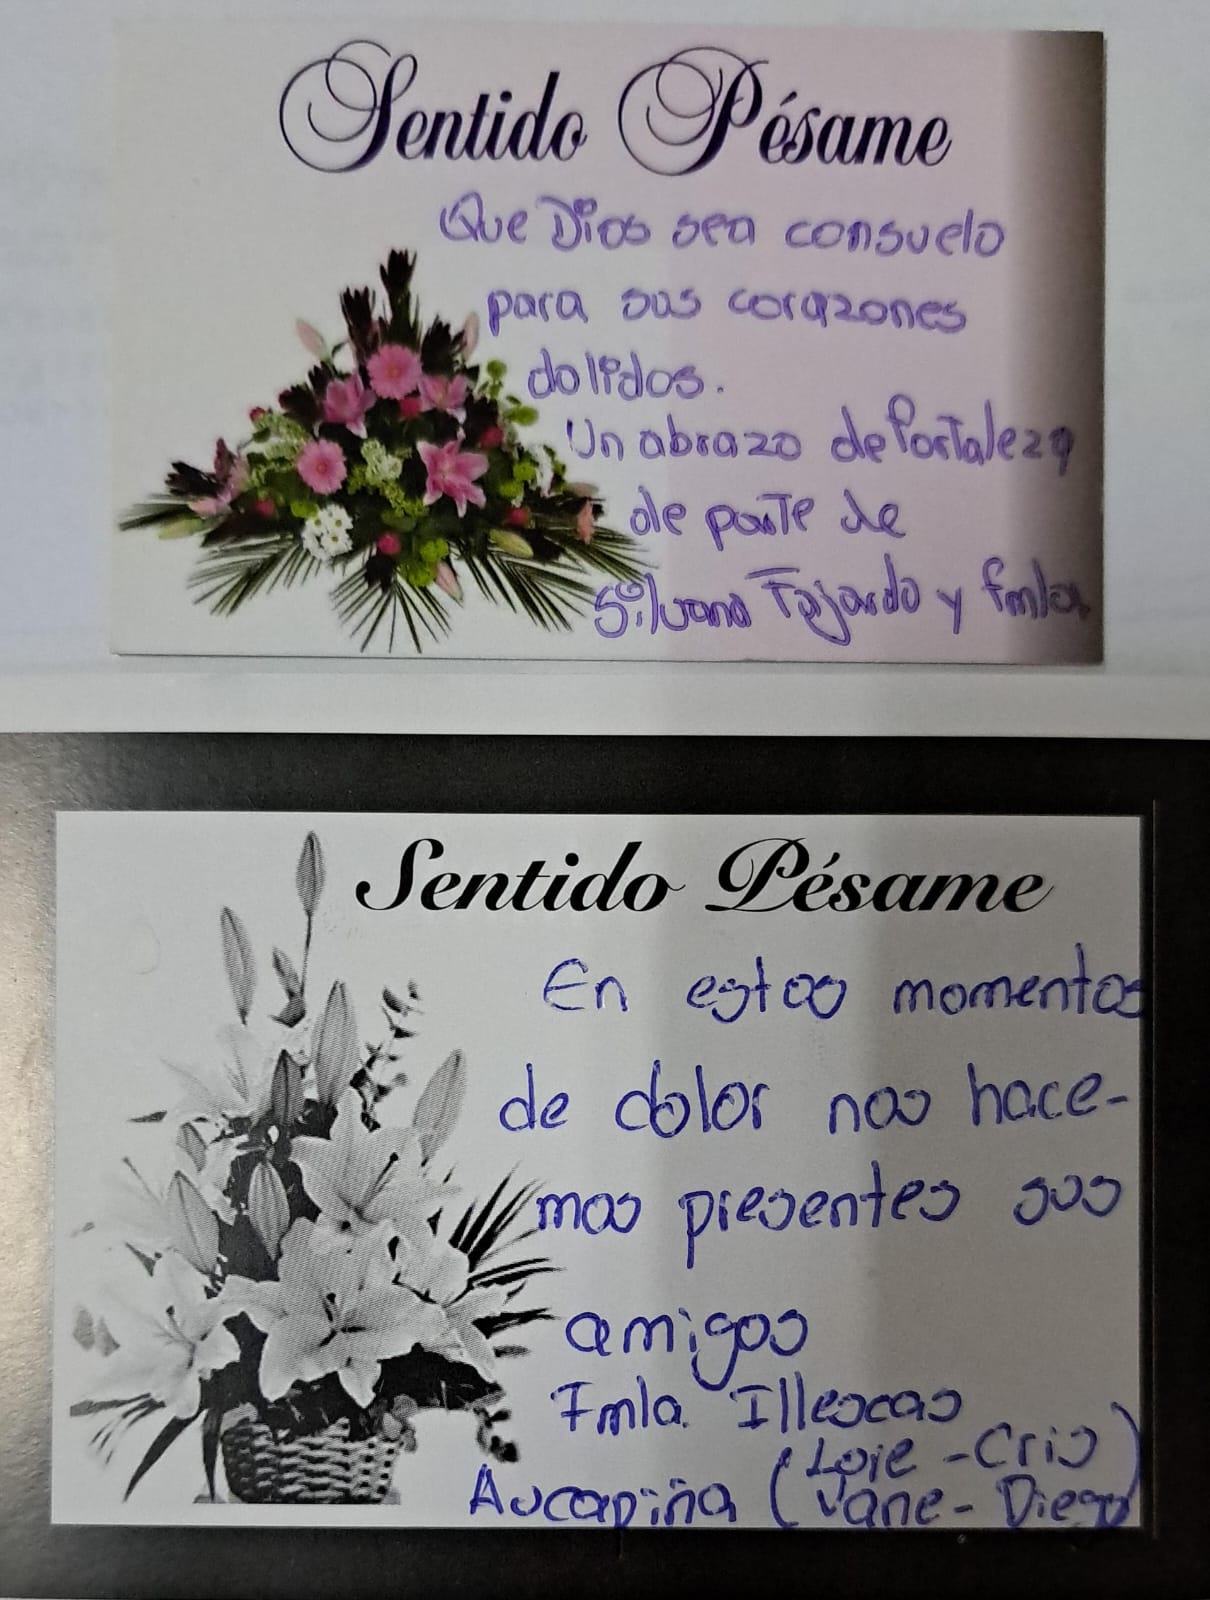 Sentido Pésame
Que Dios sea consuelo
para sus corazones
dolidos.
Un abrazo de fortaleza
de parte de
Silvana Fajardo y fmla
Sentido Pésame
En estos momentos
de dolor nos hace-
mos presentes sus
amigos
Fmla. Illescas
Aucapiña (Loje - Cris
Vane - Diego)